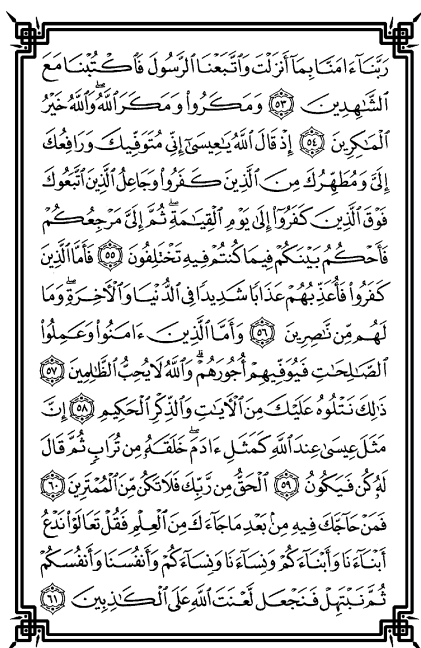 رَبَّنَآ ءَامَنَّا بِمَآ أَنزَلْتَ وَٱتَّبَعْنَا ٱلرَّسُولَ فَٱكْتُبْنَا مَعَ
ٱلشَّٰهِدِينَ ٥٣ وَمَكَرُوا۟ وَمَكَرَ ٱللَّهُ ۖ وَٱللَّهُ خَيْرُ
ٱلْمَٰكِرِينَ ٥٤ إِذْ قَالَ ٱللَّهُ يَٰعِيسَىٰٓ إِنِّى مُتَوَفِّيكَ وَرَافِعُكَ
إِلَىَّ وَمُطَهِّرُكَ مِنَ ٱلَّذِينَ كَفَرُوا۟ وَجَاعِلُ ٱلَّذِينَ ٱتَّبَعُوكَ
فَوْقَ ٱلَّذِينَ كَفَرُوٓا۟ إِلَىٰ يَوْمِ ٱلْقِيَٰمَةِ ۖ ثُمَّ إِلَىَّ مَرْجِعُكُمْ
فَأَحْكُمُ بَيْنَكُمْ فِيمَا كُنتُمْ فِيهِ تَخْتَلِفُونَ ٥٥ فَأَمَّا ٱلَّذِينَ
كَفَرُوا۟ فَأُعَذِّبُهُمْ عَذَابًا شَدِيدًا فِى ٱلدُّنْيَا وَٱلْءَاخِرَةِ ۖ وَمَا
لَهُم مِّن نَّٰصِرِينَ ٥٦ وَأَمَّا ٱلَّذِينَ ءَامَنُوا۟ وَعَمِلُوا۟
ٱلصَّٰلِحَٰتِ فَيُوَفِّيهِمْ أُجُورَهُمْ ۗ وَٱللَّهُ لَا يُحِبُّ ٱلظَّٰلِمِينَ ٥٧
ذَٰلِكَ نَتْلُوهُ عَلَيْكَ مِنَ ٱلْءَايَٰتِ وَٱلذِّكْرِ ٱلْحَكِيمِ ٥٨ إِنَّ
مَثَلَ عِيسَىٰ عِندَ ٱللَّهِ كَمَثَلِ ءَادَمَ ۖ خَلَقَهُۥ مِن تُرَابٍ ثُمَّ قَالَ
لَهُۥ كُن فَيَكُونُ ٥٩ ٱلْحَقُّ مِن رَّبِّكَ فَلَا تَكُن مِّنَ ٱلْمُمْتَرِينَ ٦٠
فَمَنْ حَآجَّكَ فِيهِ مِنۢ بَعْدِ مَا جَآءَكَ مِنَ ٱلْعِلْمِ فَقُلْ تَعَالَوْا۟ نَدْعُ
أَبْنَآءَنَا وَأَبْنَآءَكُمْ وَنِسَآءَنَا وَنِسَآءَكُمْ وَأَنفُسَنَا وَأَنفُسَكُمْ
ثُمَّ نَبْتَهِلْ فَنَجْعَل لَّعْنَتَ ٱللَّهِ عَلَى ٱلْكَٰذِبِينَ ٦١